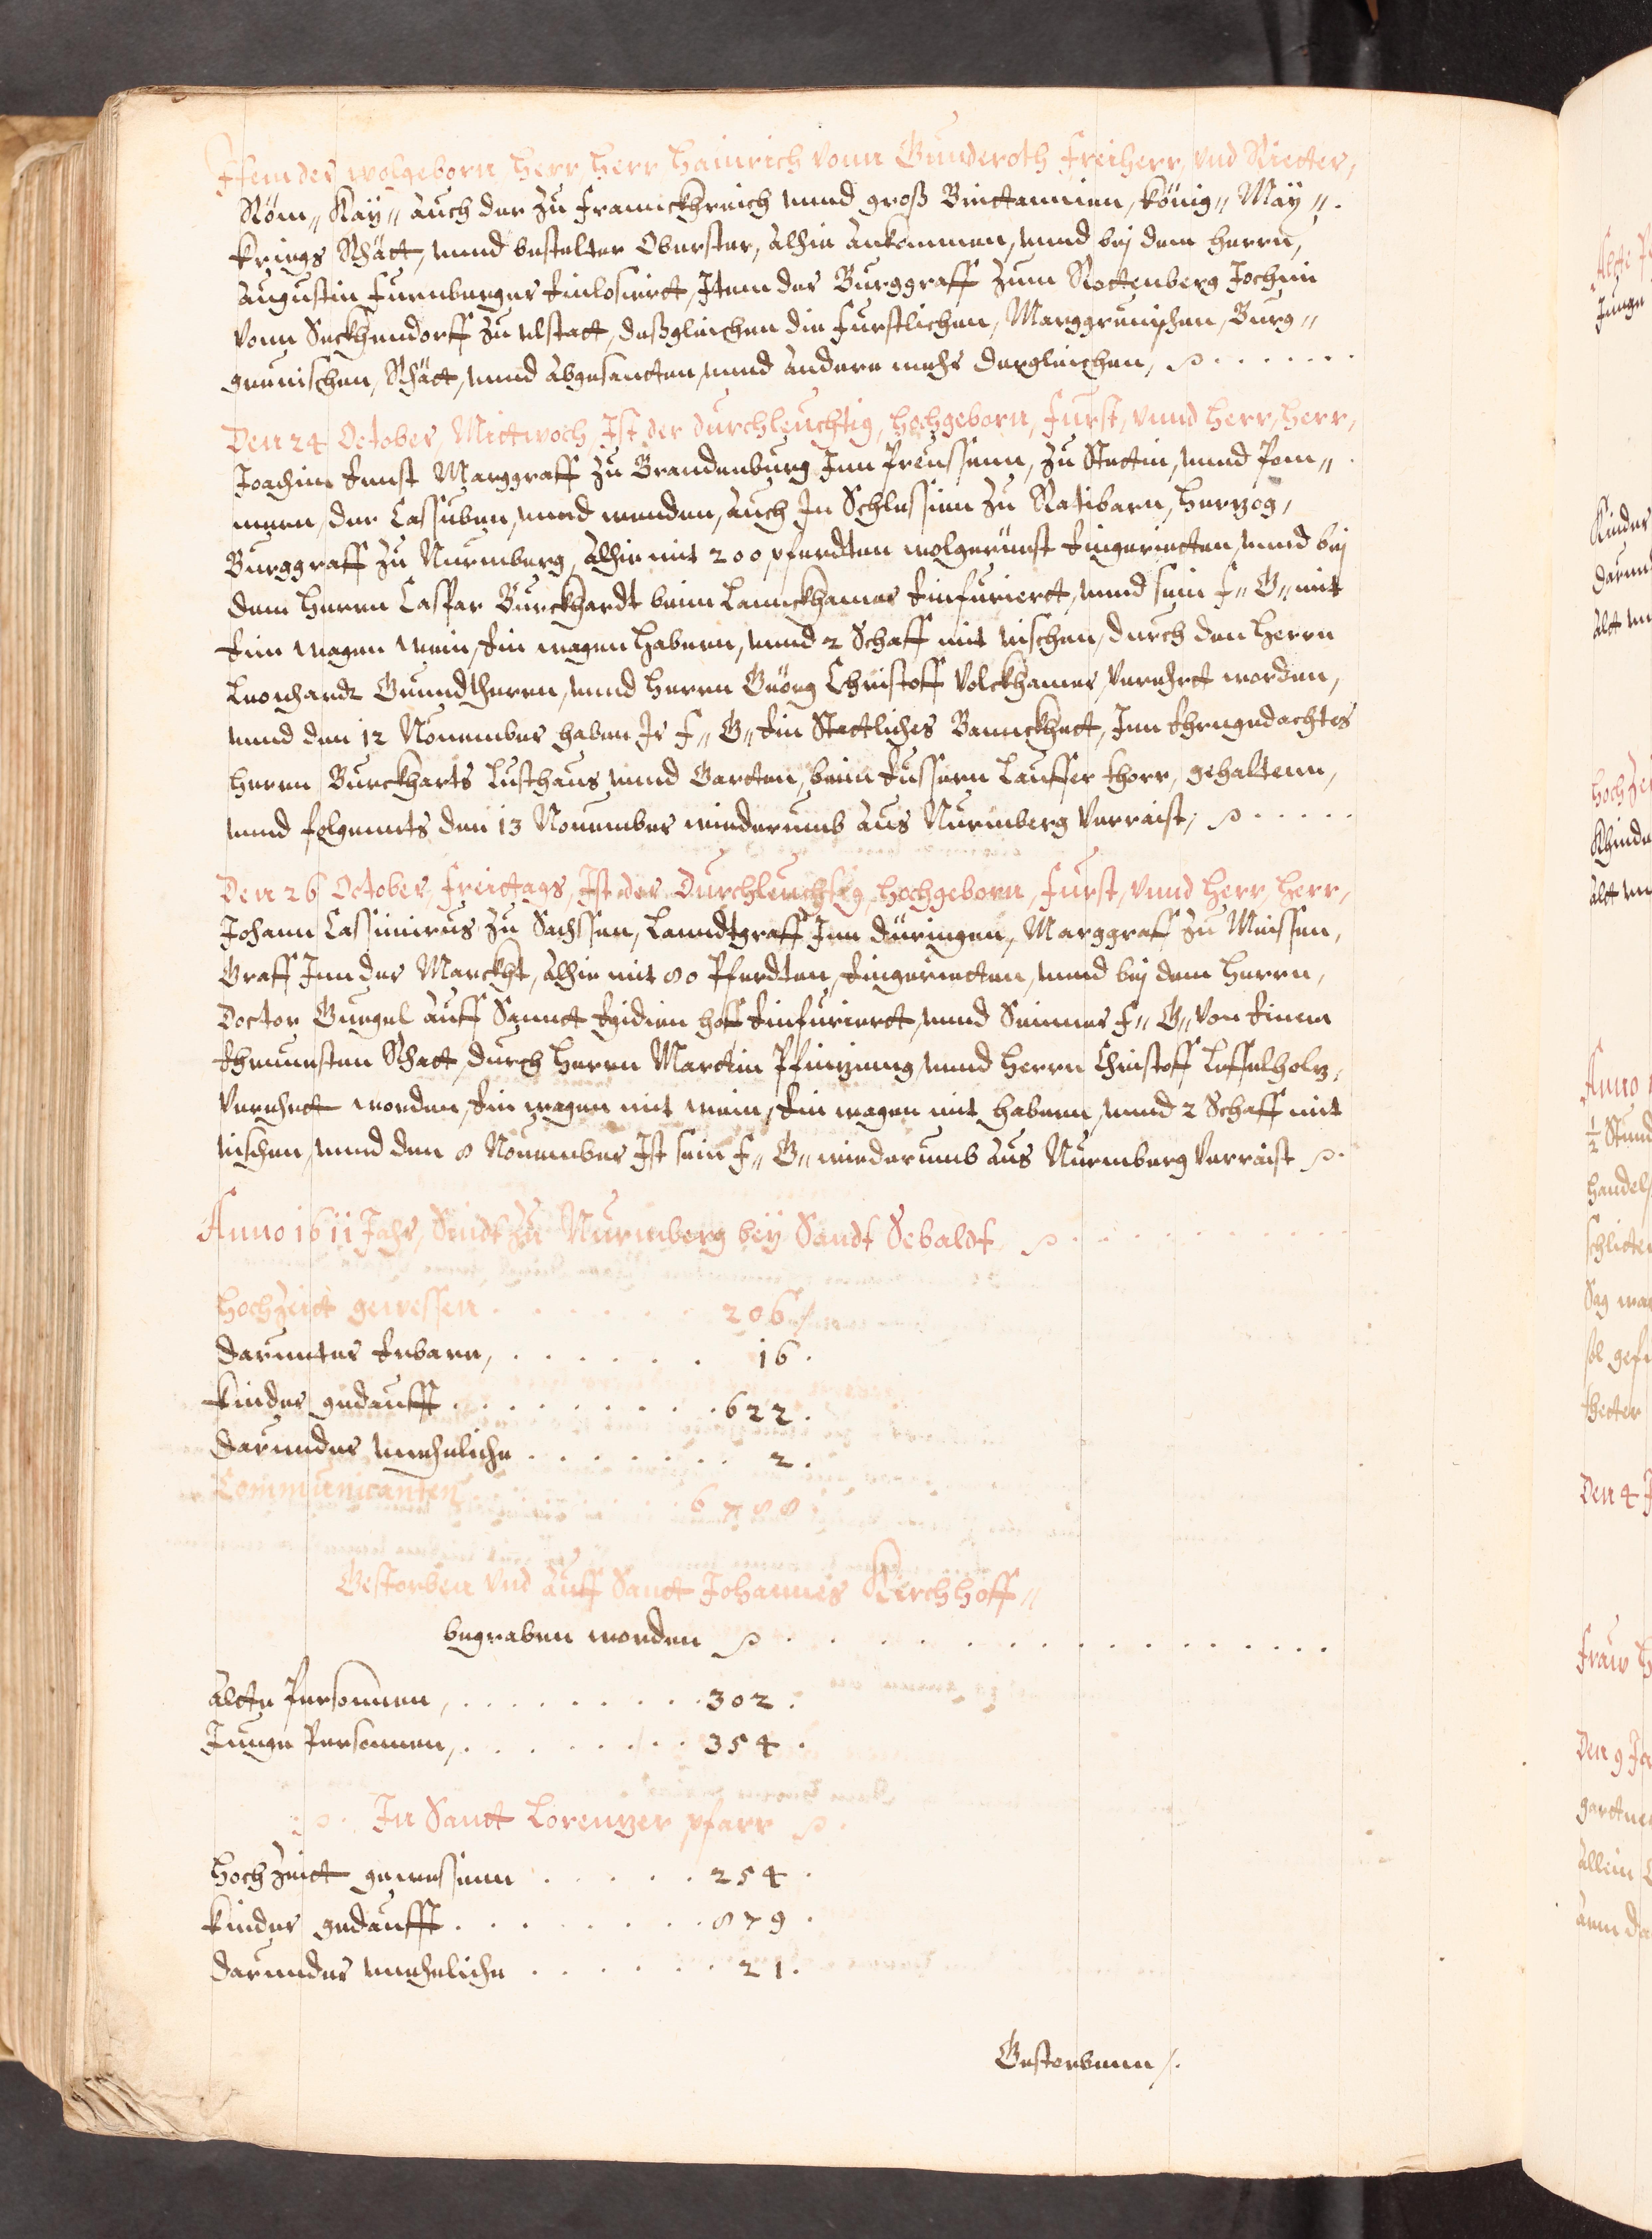 Jtem der wolgeborn Herr, Herr Hainrich vonn Gunderoth Freiherr, vnd Rietter,
Röm„ Kaÿ„ auch der zu Franckhreich vnnd groß Bricttannien, König„ Maÿ„.
Kriegs Rhätt, vnnd bestelter Oberster, alhie ankommen, vnnd bej dem Herrn,
Augustin Furnberger Einlosiertt, Jtem der Burggraff zum Rottenberg Jochim
vonn Seckhendorff zu Ulstatt, deßgleichen die Furstlichen, Marggreuischen, Burg„
greuischen, Rhätt, vnnd abgesantten, vnnd andere mehr dergleichen,
Den 24 October, Mittwoch, Jst der durchleuchtig, Hochgeborn, Furst, vnnd Herr, Herr,
Joachim Ernst Marggraff zu Brandenburg Jnn Preussenn, zu Stettin, vnnd Pom„
mern, der Cassuben, vnnd wenden, auch Jn Schlessien zu Ratibarn, Herzog,
Burggraff zu Nurmberg, alhie mit 200 pferdten wolgerüest Eingerietten, vnnd bej
dem Herrn Caspar Burckhardt beim Lannckhamer Einfuriertt, vnnd sein F„ G„ mit
Eim wagen wein, Ein wagen Habern, vnnd 2 Schaff mit vischen, durch den Herrn
Leonhardt Grundtherrn, vnnd Herrn Geörg Christoff Volckhamer, verehrtt worden,
vnnd den 12 Nouember haben Jr F„ G„ Ein Stattliches Bannckhett, Jnn Ehrngedachtes
Herrn Burckharts Lusthaus vnnd Gartten, beim Eussern Lauffer thorr, gehaltenn,
vnnd folgennts den 13 Nouember wiederumb aus Nurmberg verraist,
Den 26 October, Freittags, Jst der Durchleuchtig, Hochgeborn, Furst, vnnd Herr, Herr,
Johann Cassimirus zu Sachssen, Lanndtgraff Jnn Düringen, Marggraff zu Meissen,
Graff Jnn der Marckht, alhie mit 80 Pferdten, Eingerietten, vnnd bej dem Herrn,
Doctor Gugel auff Sannct Egidien hoff Einfuriertt, vnnd Seinner F„ G„ von Einem
Ehrnuesten Rhatt, durch Herrn Marttin Pfinzinng vnnd Herrn Christoff Loffelholz,
verehrtt worden, Ein wagen mit wein, Ein wagen mit habern, vnnd 2 Schaff mit
vischen, vnnd den 8 Nouember Jst sein F„ G„ wiederumb aus Nurmberg verraist
Anno 1611 Jahr, Sindt zu Nurmberg beÿ Sandt Sebaldt
Hochzeitt gewessen . . . . . . 206/
Darunter Erbare, . . . . . . 16.
Kinder gedaufft . . . . . . . . 622.
Darunder vneheliche . . . . . . . 2.
Communicanten . . . . . . 6788
Gestorben vnd auff Sanct Johannes Kirchhoff„
begraben worden
Altte Personnen, . . . . . . . . 302.
Junge Personnen, . . . . . . . . 354.
In Sanct Lorenzer pfarr
Hochzeitt gewessenn . . . . . 254.
Kinder gedaufft . . . . . . . . 879.
Darunder vneheliche . . . . . . 21.
Gestorbenn/.